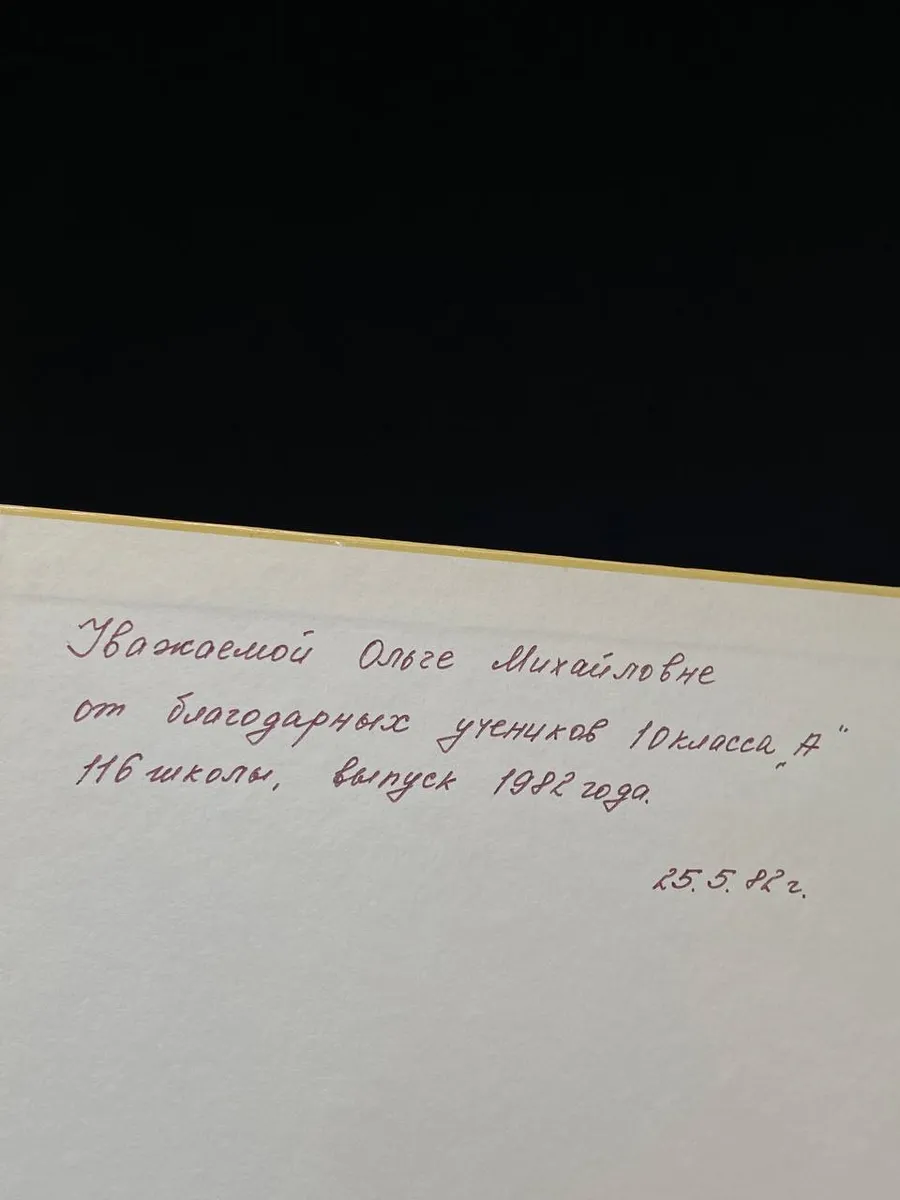 Уважаемой Ольге Михайловне
от благодарных учеников 10 класса „А"
116 школы, выпуск 1982 года.
25.5.82 г.